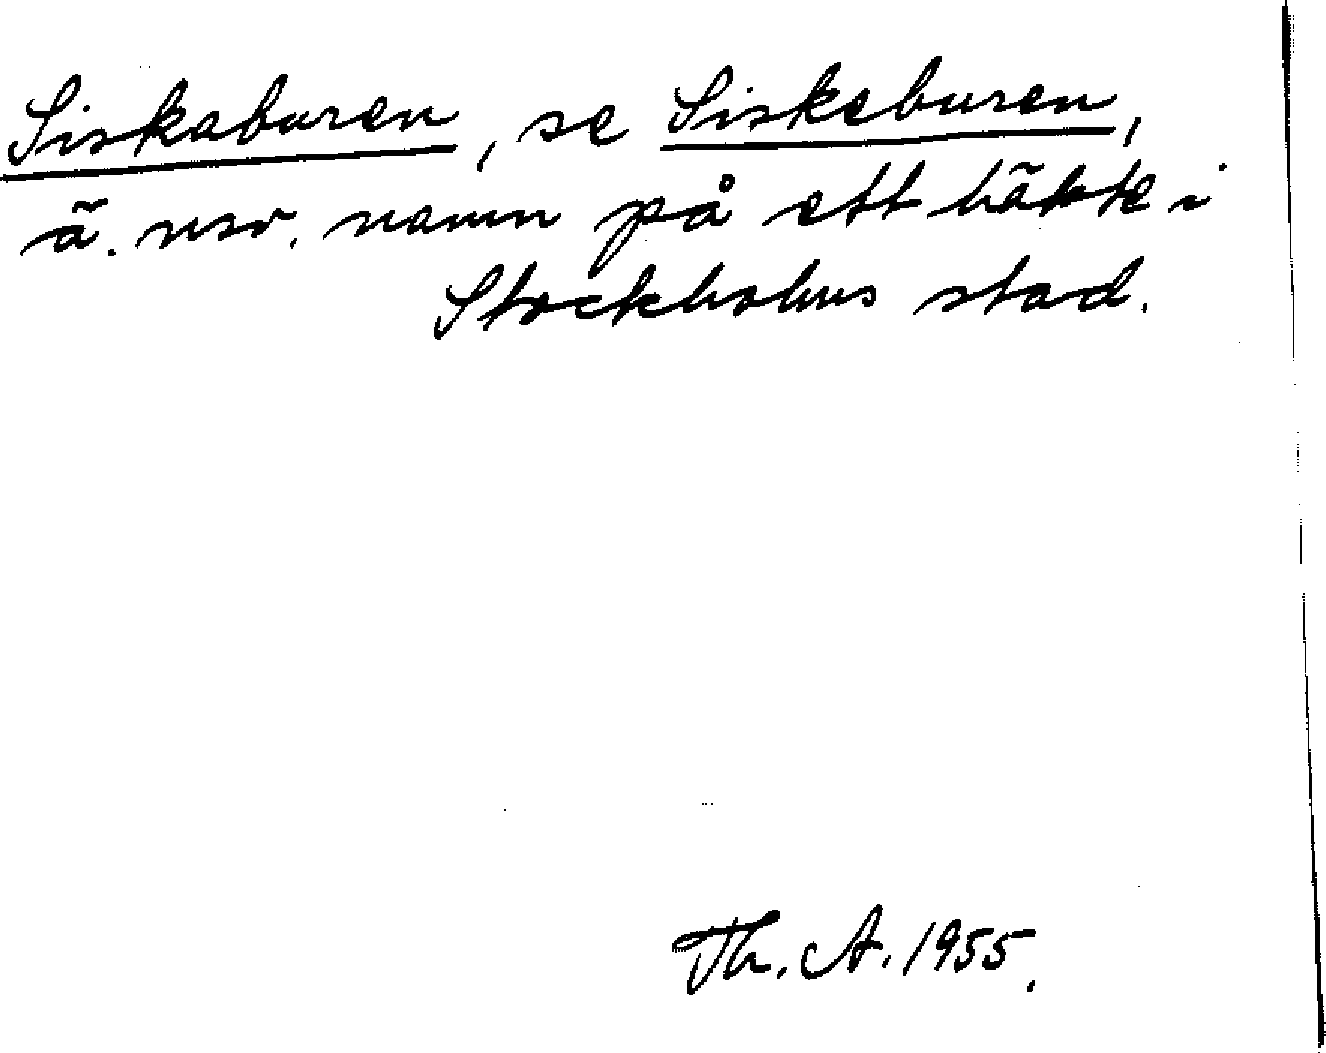 Siskaburen, se Siskeburen,
ä. nsv. namn på ett häkte i
Stockholms stad.
Th. A. 1955.